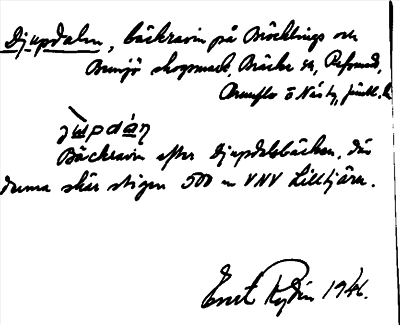 Djupdalen, bäckravin på Bräcklings och
Brunjö skogsmark, Bräcke sn, Refsund,
Brunflo o Näs tg, Jämtl. l.
jʉpdán
Bäckravin efter Djupdalsbäcken, där
denna skär stigen 500 m VNV Lilltjärn.
Ernst Rydin 1946.